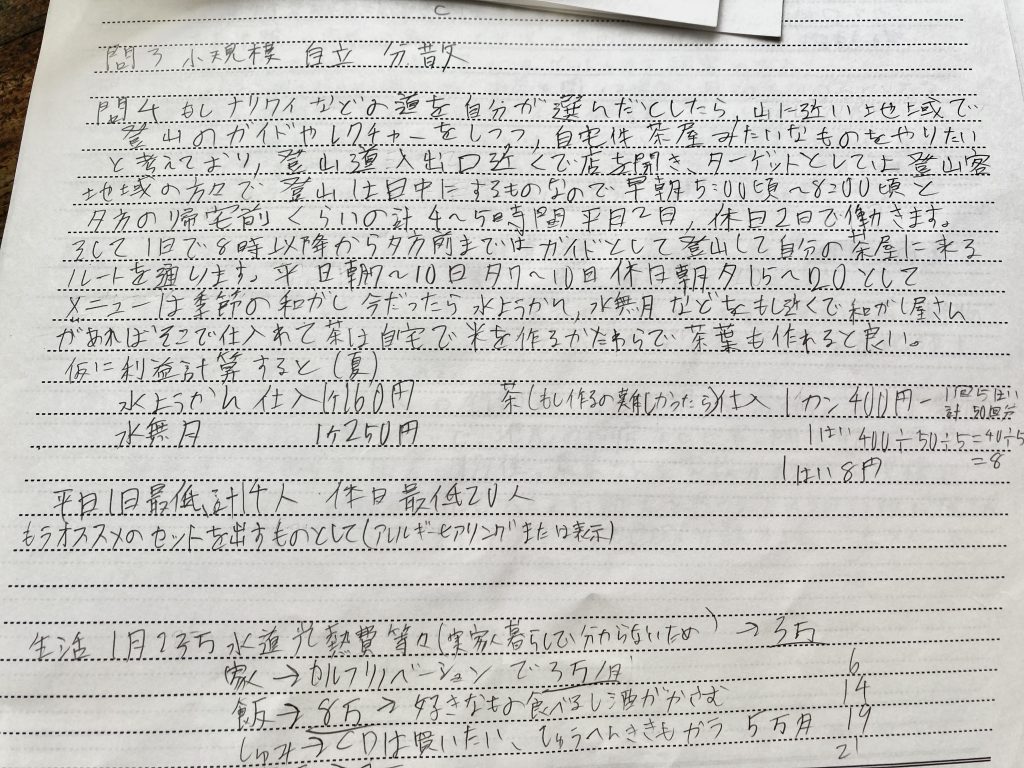 C
問3 小規模 自立 分散
問4 もしナリワイなどの道を自分が選んだとしたら、山に近い地域で
登山のガイドやレクチャーをしつつ、自宅件茶屋みたいなものをやりたい
と考えており、登山道入出口近くで店を開き、ターゲットとしては登山客
地域の方々で登山は日中にするものなので早朝5:00頃〜8:00頃と
夕方の帰宅前くらいの計4〜5時間 平日2日、休日2日で働きます。
そして1日で8時以降から夕方前まではガイドとして登山して自分の茶屋に来る
ルートを通ります。平日朝7〜10日夕7〜10日休日朝夕15〜20として
メニューは季節の和がし 今だったら水ようかん、水無月などをもし近くで和がし屋さん
があればそこで仕入れて茶は自宅で米を作るかたわらで茶葉も作れると良い。
仮に利益計算すると(夏)
水ようかん 仕入1ケ160円 茶(もし作るの難しかったら)仕入 1カン400円 - 1回5はい
計50回分
水無月 1ケ250円 1はい 400÷50÷5=40÷5
=8
1はい8円
平日1日最低計14人 休日最低20人
もうオススメのセットを出すものとして(アレルギーヒアリングまたは表示)
生活 1月23万 水道光熱費等々(実家暮らしで分からないため) → 3万
家→セルフリノベーションで3万/月 6
飯→8万→好きなもの食べるし酒がかさむ 14
しゅみ→CDは買いたい、しゅうへんききもかう 5万月 19
21